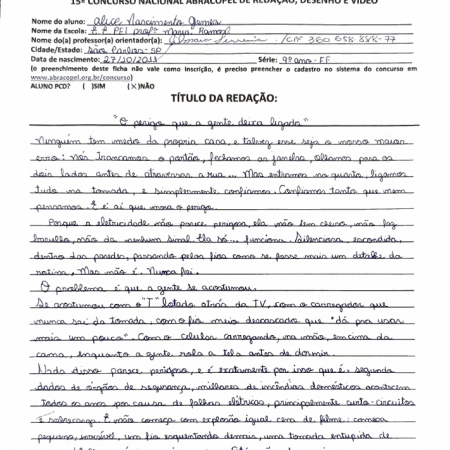 15º CONCURSO NACIONAL ABRACOPEL DE REDAÇÃO, DESENHO E VÍDEO
Nome do aluno: Alice Nascimento
Nome da Escola: E.E PEI profª Maria Ramos
Nome do(a) professor(a) orientador(a):
Cidade/Estado: São Paulo - SP
Data de nascimento: 27/10/2011 Série: 9º ano - EF
(o preenchimento deste ficha não vale como inscrição, é preciso preencher o cadastro no sistema do concurso em
www.abracopel.org.br/concurso)
ALUNO PCD? ( )SIM (X)NÃO
TÍTULO DA REDAÇÃO:
"O perigo que a gente deixa ligado"
Ninguém tem medo da propria casa, e talvez esse seja o nosso maior
erro: Nós trancamos o portão, fechamos as janelas, olhamos para os
dois lados antes de atravessar a rua... Mas entramos no quarto, ligamos
tudo na tomada, e simplesmente confiamos. Confiamos tanto que nem
pensamos. E é aí que mora o perigo.
Porque a eletricidade não parece perigosa, ela não tem cheiro, não faz
barulho, não da nenhum sinal. Ela só... funciona. Silenciosa, escondida,
dentro das paredes, passando pelos fios como se fosse mais um detalhe da
rotina, Mas não é. Nunca foi.
O problema é que a gente se acostumou.
Se acostumou com o "T" lotado atrás da TV, com o carregador que
nunca sai da tomada, com o fio meio descascado que "dá pra usar
mais um pouco". Com o celular carregando, na mão, em cima da
cama, enquanto a gente rola a tela antes de dormir.
Nada disso parece perigoso, e é exatamente por isso que é. segundo
dados de órgãos de segurança, milhares de incêndios domésticos acontecem
todos os anos por causa de falhas elétricas, principalmente curto-circuitos
e sobrecarga. E não começa com explosão igual cena de filme: começa
pequeno, invisível, um fio esquentando demais, uma tomada entupida de